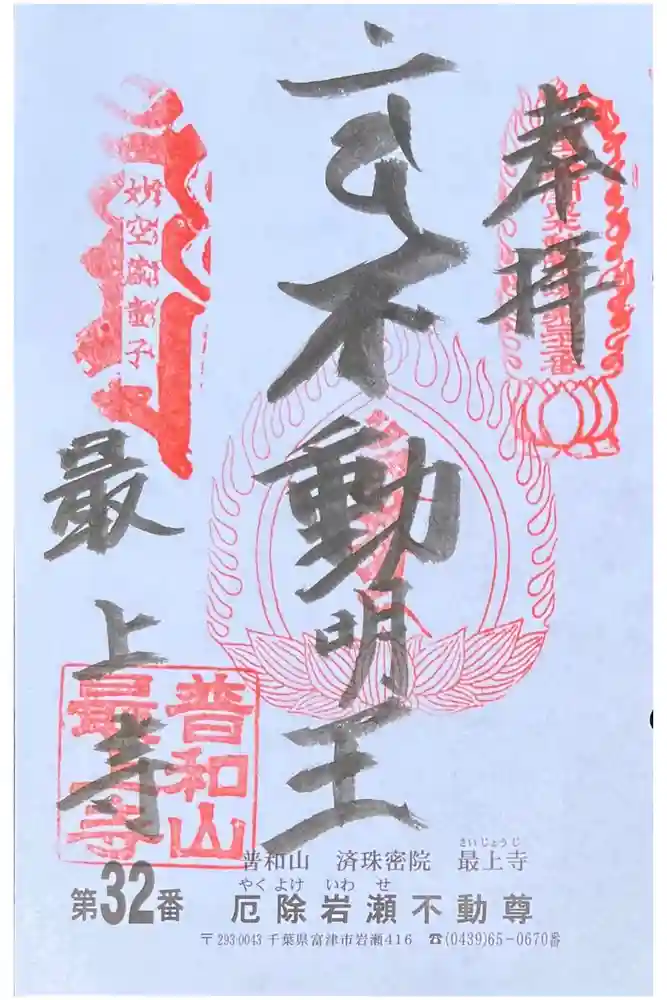 奉拝
不動明王
最上寺
妙空蔵童子
普和山
最上寺
普和山 済珠密院 最上寺
さいじょうじ
第32番
やくよけ いわせ
厄除岩瀬不動尊
〒293-0043 千葉県富津市岩瀬416 ☎(0439)65-0670番